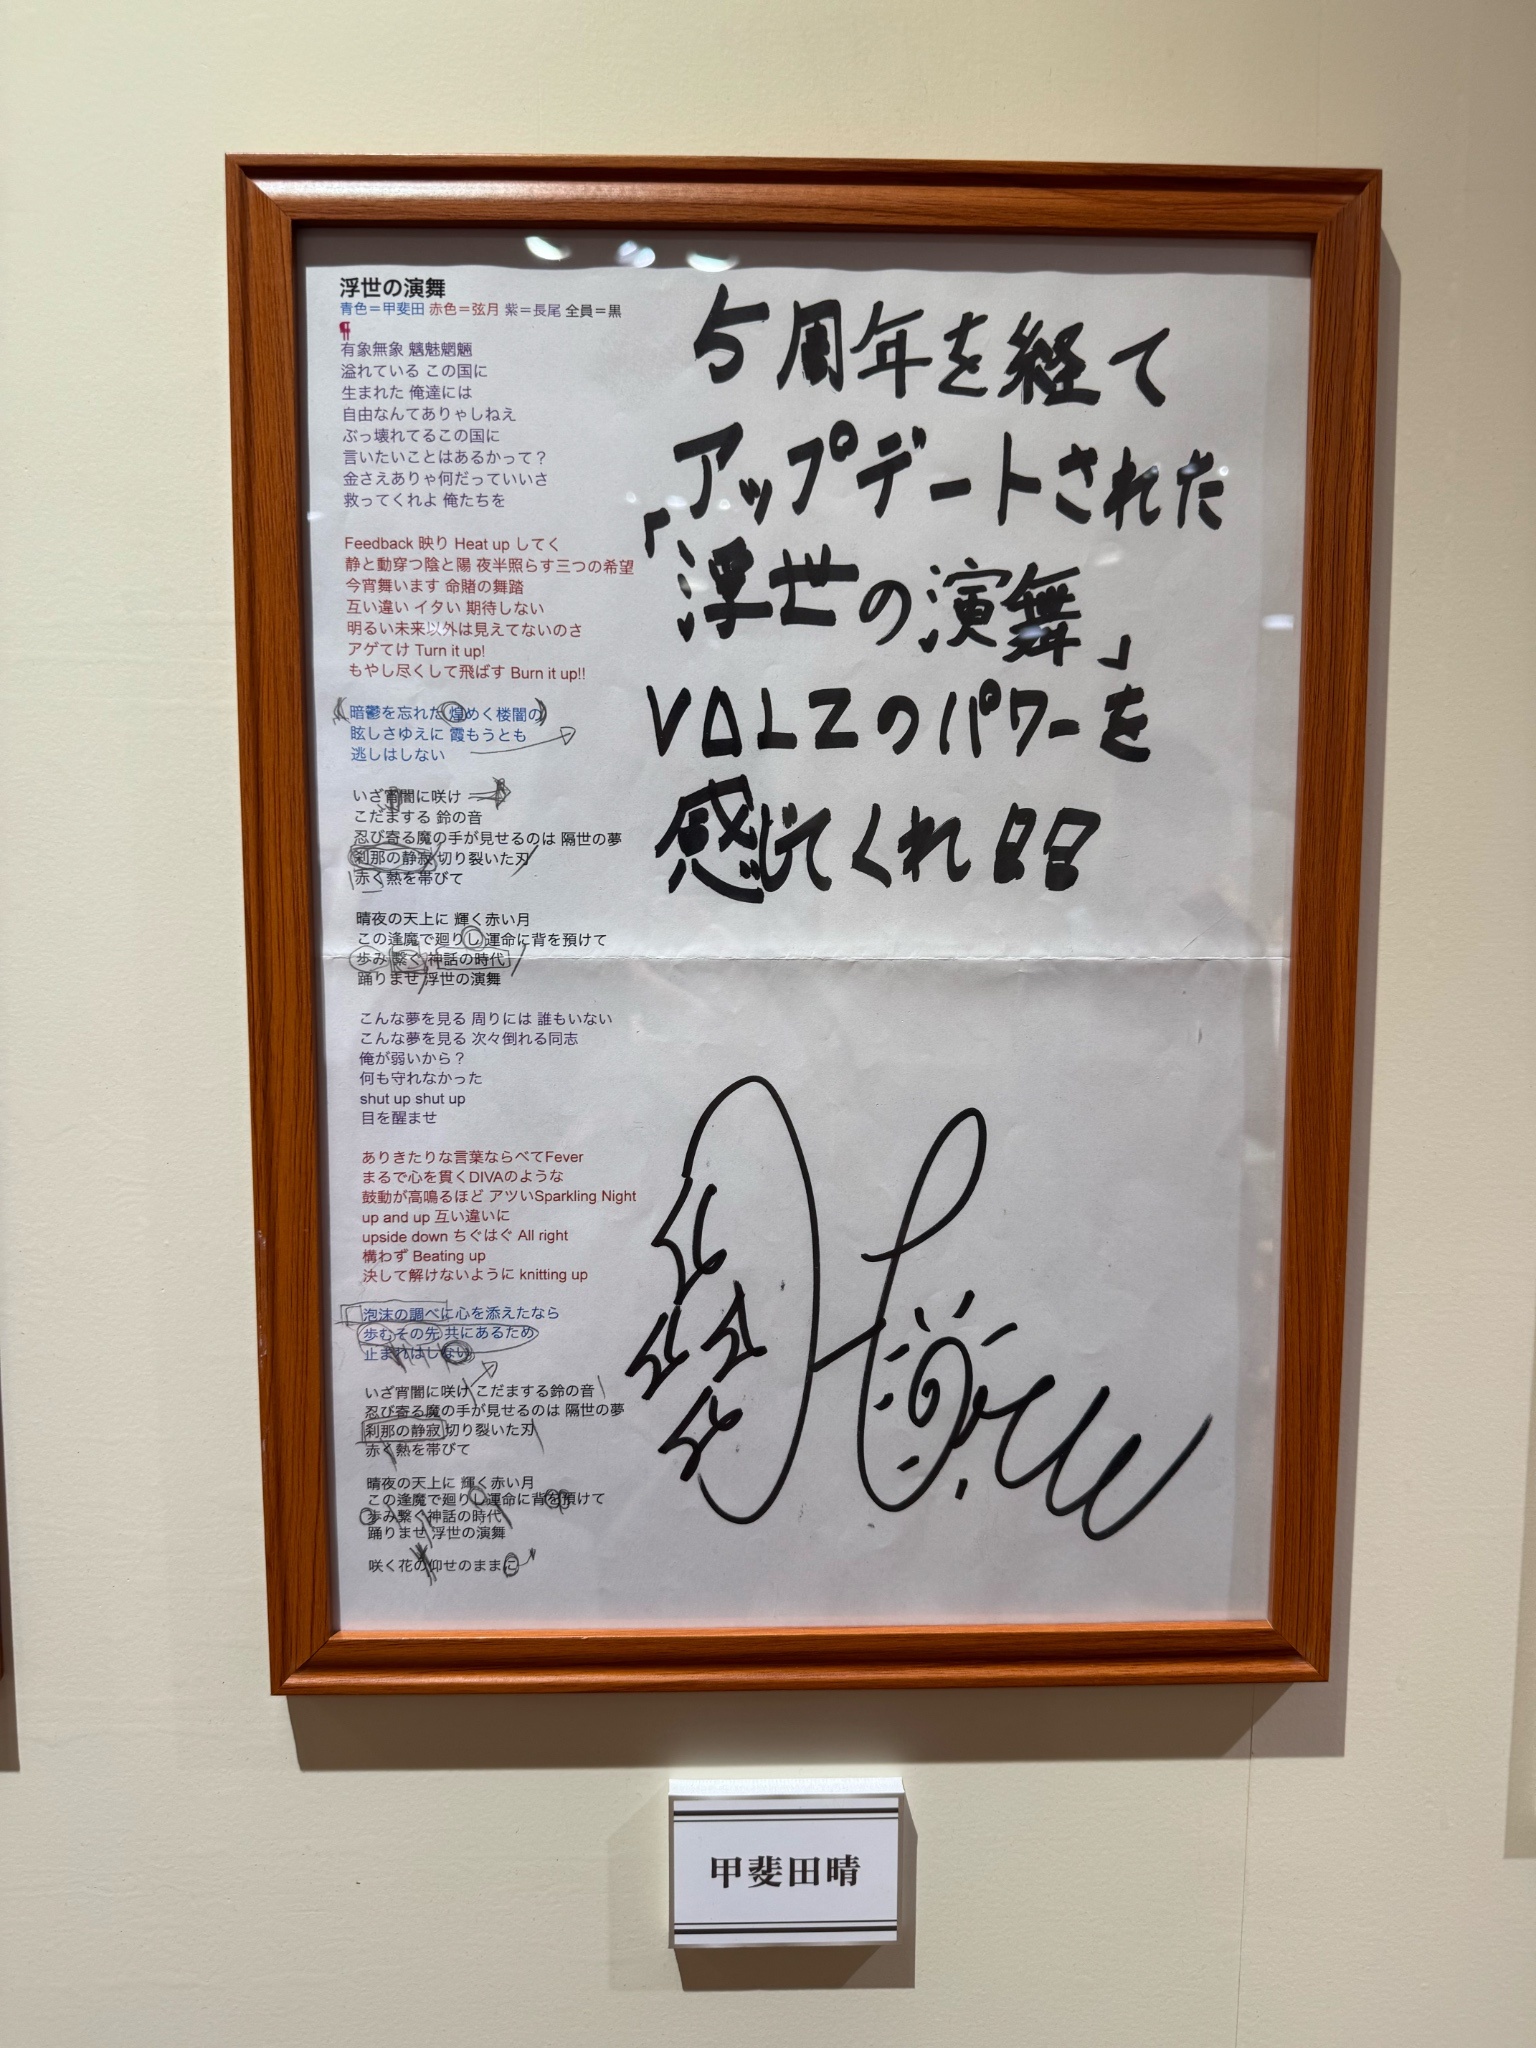 浮世の演舞
青色＝甲斐田 赤色＝弦月 紫＝長尾 全員＝黒
有象無象 魑魅魍魎
溢れている この国に
生まれた 俺達には
自由なんてありゃしねえ
ぶっ壊れてるこの国に
言いたいことはあるかって？
金さえありゃ何だっていいさ
救ってくれよ 俺たちを
Feedback 映り Heat up してく
静と動穿つ陰と陽 夜半照らす三つの希望
今宵舞います 命賭の舞踏
互い違い イタい 期待しない
明るい未来以外は見えてないのさ
アゲてけ Turn it up!
もやし尽くして飛ばす Burn it up!!
暗鬱を忘れた 煌めく楼闇の
眩しさゆえに 霞もうとも
逃しはしない
いざ宵闇に咲け
こだまする 鈴の音
忍び寄る魔の手が見せるのは 隔世の夢
刹那の静寂 切り裂いた刃
赤く熱を帯びて
晴夜の天上に 輝く赤い月
この逢魔で廻りし 運命に背を預けて
歩み 繋ぐ 神話の時代
踊りませ 浮世の演舞
こんな夢を見る 周りには 誰もいない
こんな夢を見る 次々倒れる同志
俺が弱いから？
何も守れなかった
shut up shut up
目を醒ませ
ありきたりな言葉ならべてFever
まるで心を貫くDIVAのような
鼓動が高鳴るほど アツいSparkling Night
up and up 互い違いに
upside down ちぐはぐ All right
構わず Beating up
決して解けないように knitting up
泡沫の調べに心を添えたなら
歩むその先 共にあるため
止まれはしない
いざ宵闇に咲け こだまする鈴の音
忍び寄る魔の手が見せるのは 隔世の夢
刹那の静寂 切り裂いた刃
赤く熱を帯びて
晴夜の天上に 輝く赤い月
この逢魔で廻りし運命に背を預けて
歩み繋ぐ神話の時代
踊りませ 浮世の演舞
咲く花の仰せのままに
5周年を経て
アップデートされた
「浮世の演舞」
VΔLZのパワーを
感じてくれ
甲斐田晴